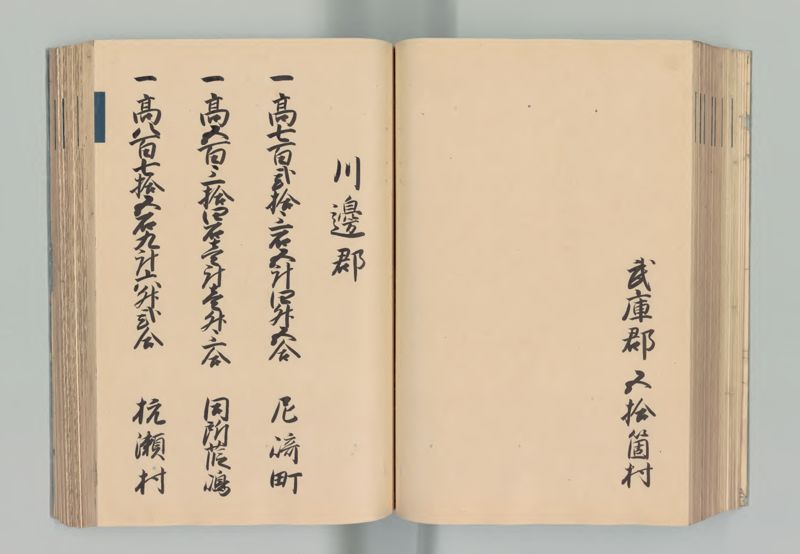 武庫郡 五拾箇村
川邊郡
一高七百弐拾三石五斗四升五合 尼崎町
一高五百三拾四石壱斗壱升三合 同所 嶋
一高八百七拾五石九斗六升弐合 杭瀬村